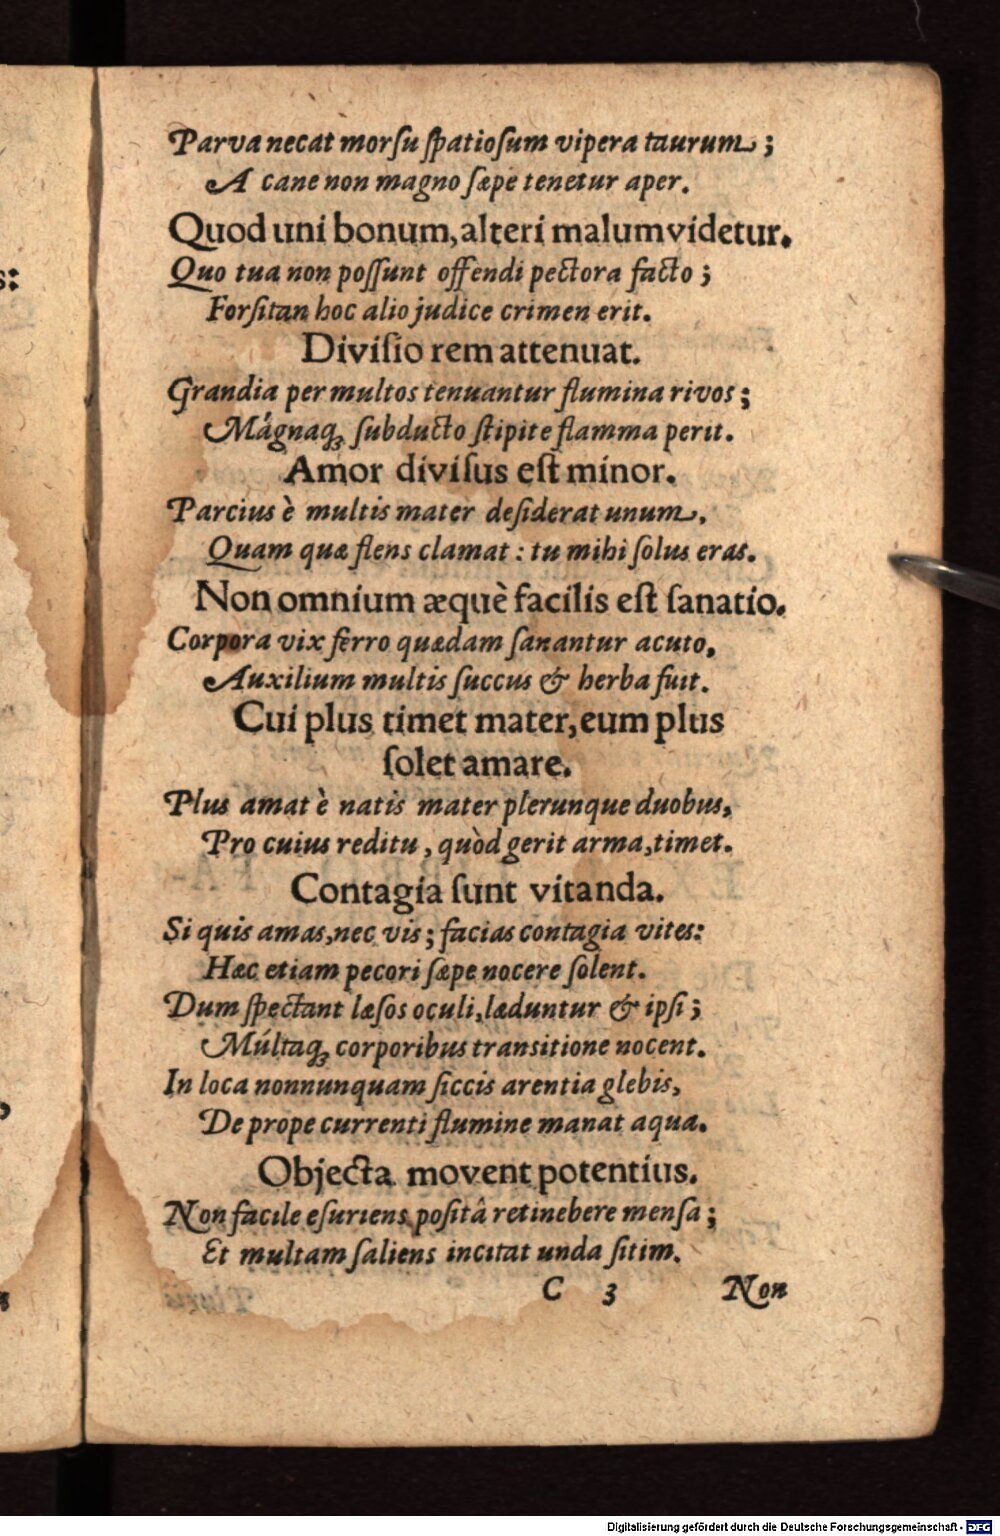 Parva necat morſu ſpatioſum vipera taurum;
A cane non magno ſæpe tenetur aper.
Quod uni bonum, alteri malum videtur.
Quo tua non poſſunt offendi pectora facto;
Forſitan hoc alio judice crimen erit.
Diviſio rem attenuat.
Grandia per multos tenuantur flumina rivos;
Mágnaq́; ſubducto ſtipite flamma perit.
Amor diviſus eſt minor.
Parcius è multis mater deſiderat unum,
Quam quæ flens clamat: tu mihi ſolus eras.
Non omnium æquè facilis eſt ſanatio.
Corpora vix ferro quædam ſanantur acuto,
Auxilium multis ſuccus & herba fuit.
Cui plus timet mater, eum plus
ſolet amare.
Plus amat è natis mater plerunque duobus,
Pro cuius reditu, quòd gerit arma, timet.
Contagia ſunt vitanda.
Si quis amas, nec vis; facias contagia vites:
Hæc etiam pecori ſæpe nocere ſolent.
Dum ſpectant læſos oculi, læduntur & ipſi;
Múltaq́; corporibus transitione nocent.
In loca nonnunquam ſiccis arentia glebis,
De prope currenti flumine manat aqua.
Objecta movent potentius.
Non facile eſuriens poſitâ retinebere menſa;
Et multam ſaliens incitat unda ſitim.
C 3 Non
Digitalisierung gefördert durch die Deutsche Forschungsgemeinschaft - DFG